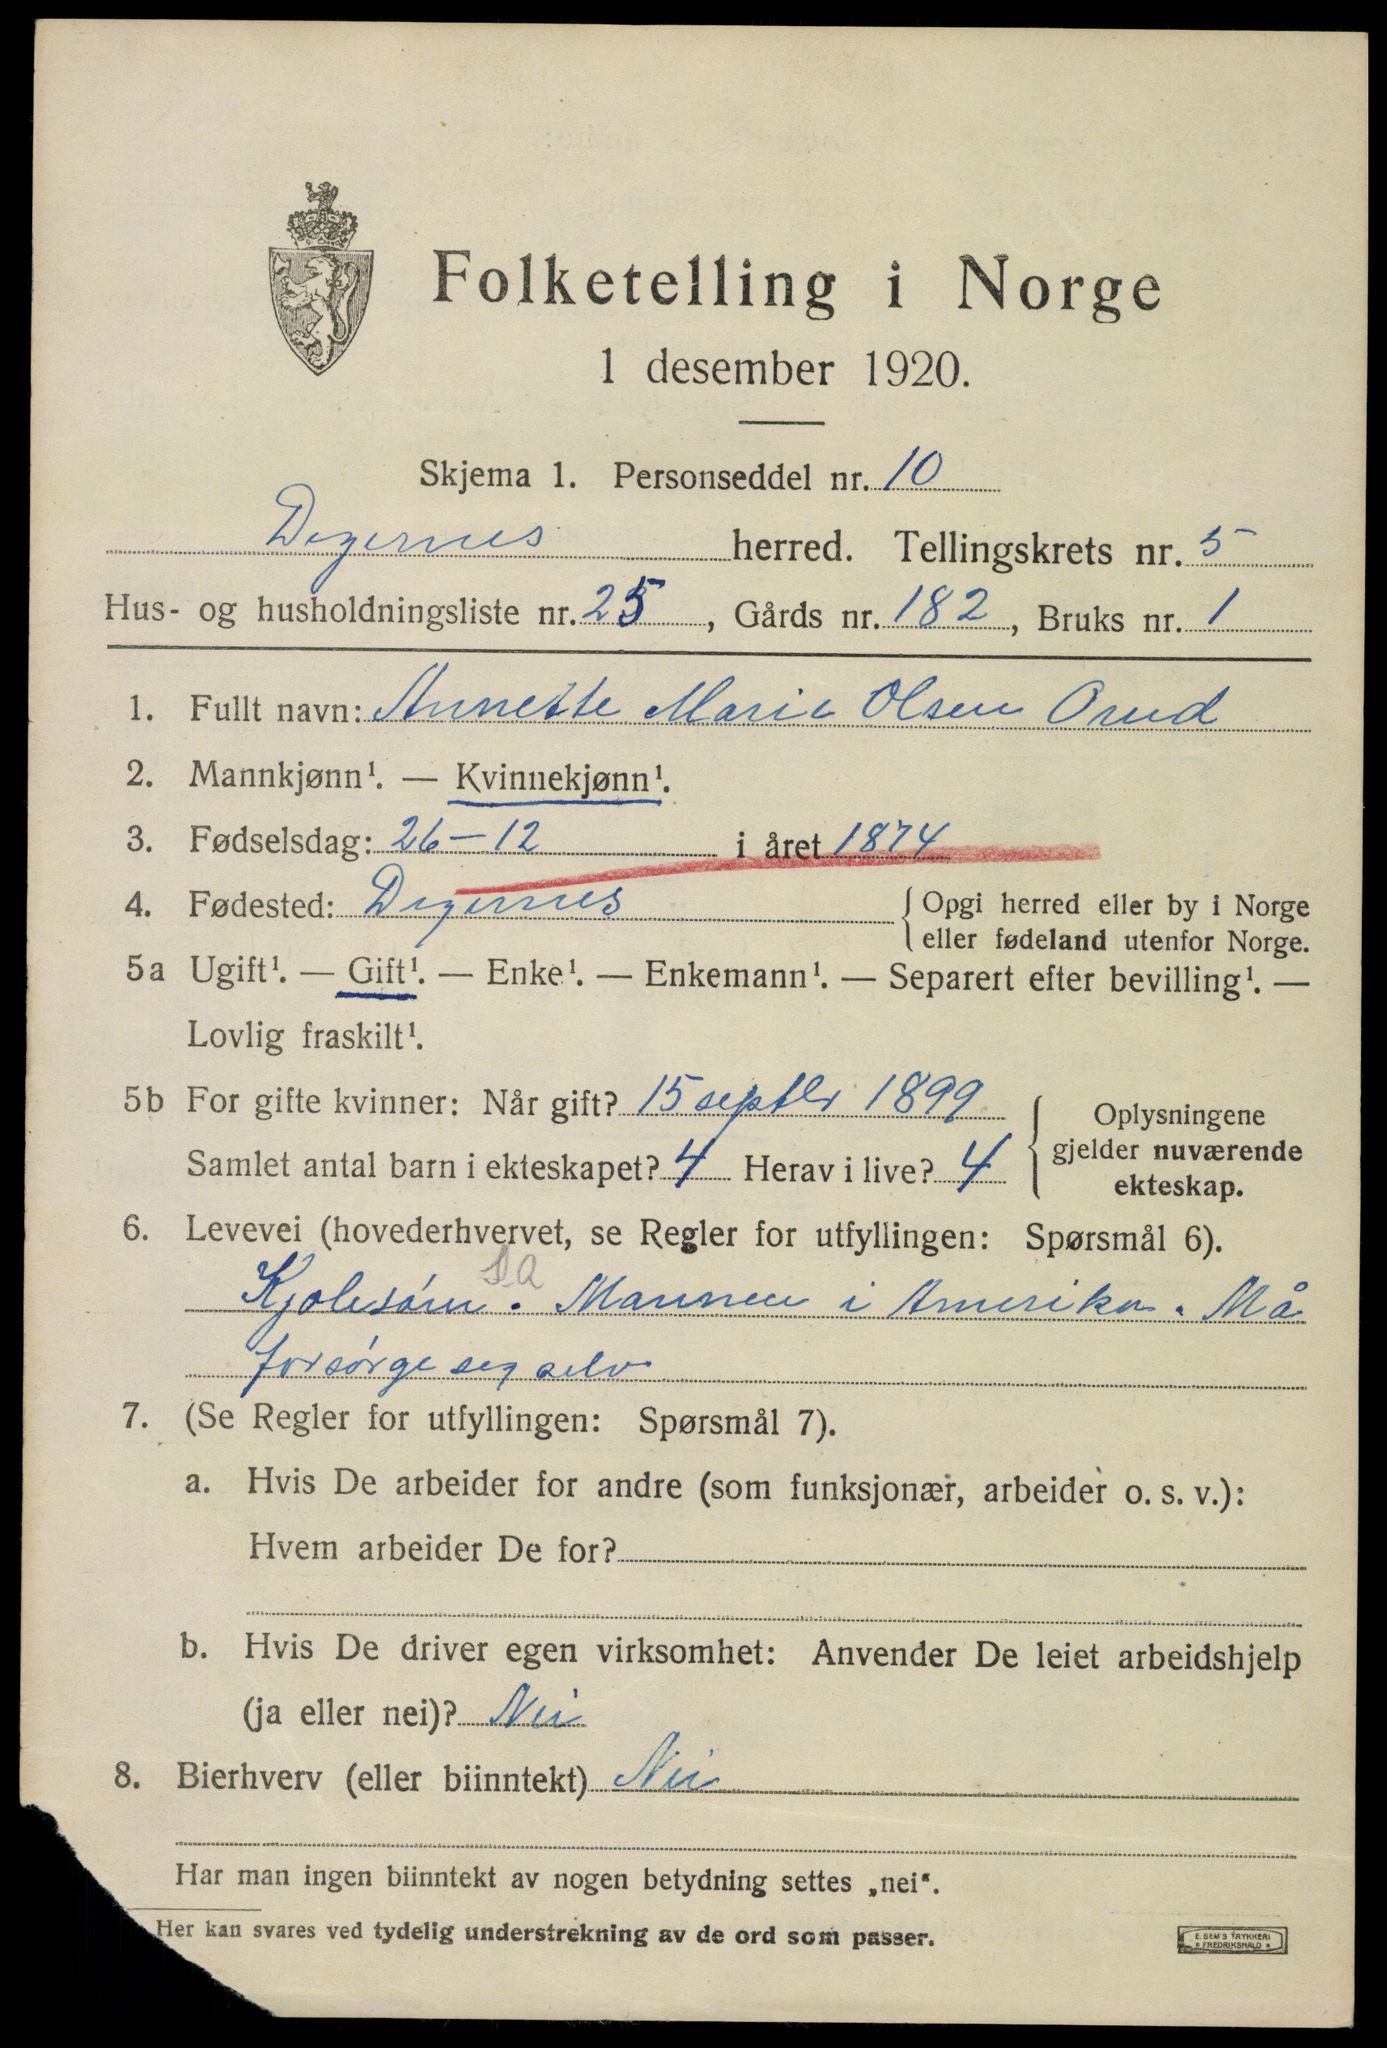 Folketelling i Norge
1 desember 1920.
Skjema 1. Personseddel nr. 10
Degernes herred. Tellingskrets nr. 5
Hus- og husholdningsliste nr. 25, Gårds nr. 182, Bruks nr. 1
1. Fullt navn: Annette Marie Olsen Orud
2. Mannkjønn¹. — Kvinnekjønn¹.
3. Fødselsdag: 26–12 i året 1874
4. Fødested: Degernes { Opgi herred eller by i Norge
eller fødeland utenfor Norge.
5a Ugift¹. — Gift¹. — Enke¹. — Enkemann¹. — Separert efter bevilling¹. —
Lovlig fraskilt¹.
5b For gifte kvinner: Når gift? 15 septbr 1899
Samlet antal barn i ekteskapet? 4 Herav i live? 4
{ Oplysningene
gjelder nuværende
ekteskap.
6. Levevei (hovederhvervet, se Regler for utfyllingen: Spørsmål 6).
Kjolesøm. Mannen i Amerika. Må
forsørge seg selv
7. (Se Regler for utfyllingen: Spørsmål 7).
a. Hvis De arbeider for andre (som funksjonær, arbeider o. s. v.):
Hvem arbeider De for?
b. Hvis De driver egen virksomhet: Anvender De leiet arbeidshjelp
(ja eller nei)? Nei
8. Bierhverv (eller biinntekt) Nei
Har man ingen biinntekt av nogen betydning settes „nei“.
Her kan svares ved tydelig understrekning av de ord som passer.
E. SEM'S TRYKKERI
* FREDRIKSHALD *